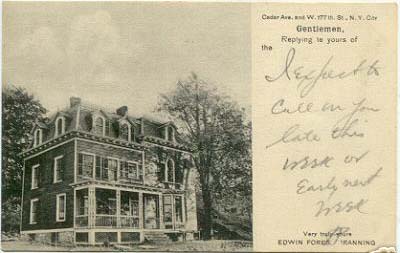 Cedar Ave. and W. 177th. St., N.Y. City
Gentlemen,
Replying to yours of
the
I expect to
Call on you
late this
week or
Early next
week
Very truly yours
EDWIN FORREST MANNING